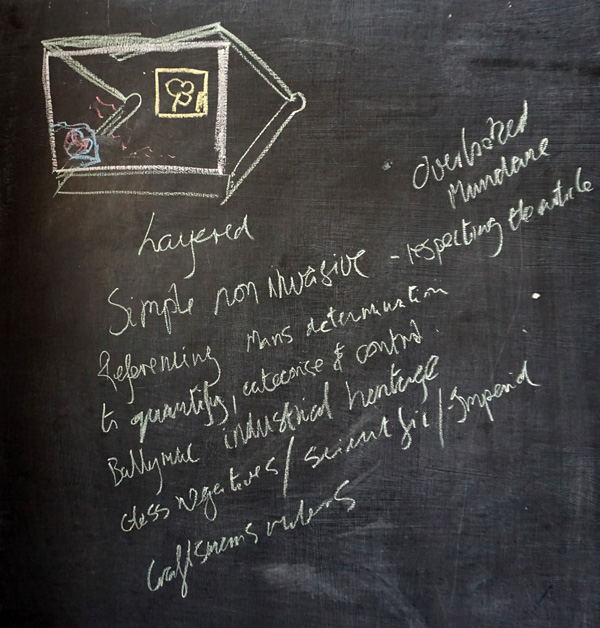 Overlooked
Mundane
Layered
Simple non invasive - respecting the article
Referencing mans determination
to quantify, categorise & control.
industrial heritage
Glass negatives / scientific / Imperial
Craftsmans